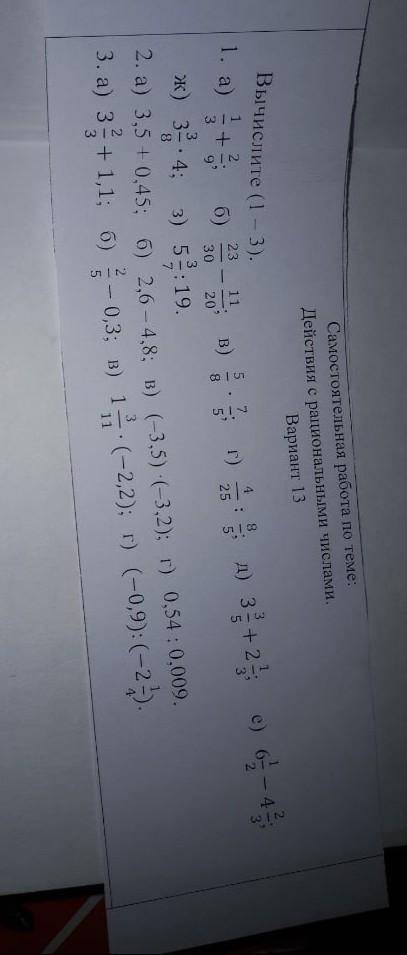 Самостоятельная работа по теме:
Действия с рациональными числами.
Вариант 13
Вычислите (1 – 3).
1. а) 1/3 + 2/9; б) 23/30 − 11/20; в) 5/8 · 7/5; г) 4/25 : 8/5; д) 3 3/5 + 2 1/3; е) 6 1/2 − 4 2/3;
ж) 3 3/8 · 4; з) 5 3/7 : 19.
2. а) 3,5 + 0,45; б) 2,6 – 4,8; в) (–3,5) ·(–3,2); г) 0,54 : 0,009.
3. а) 3 2/3 + 1,1; б) 2/5 − 0,3; в) 1 3/11 · (−2,2); г) (−0,9):(−2 1/4).